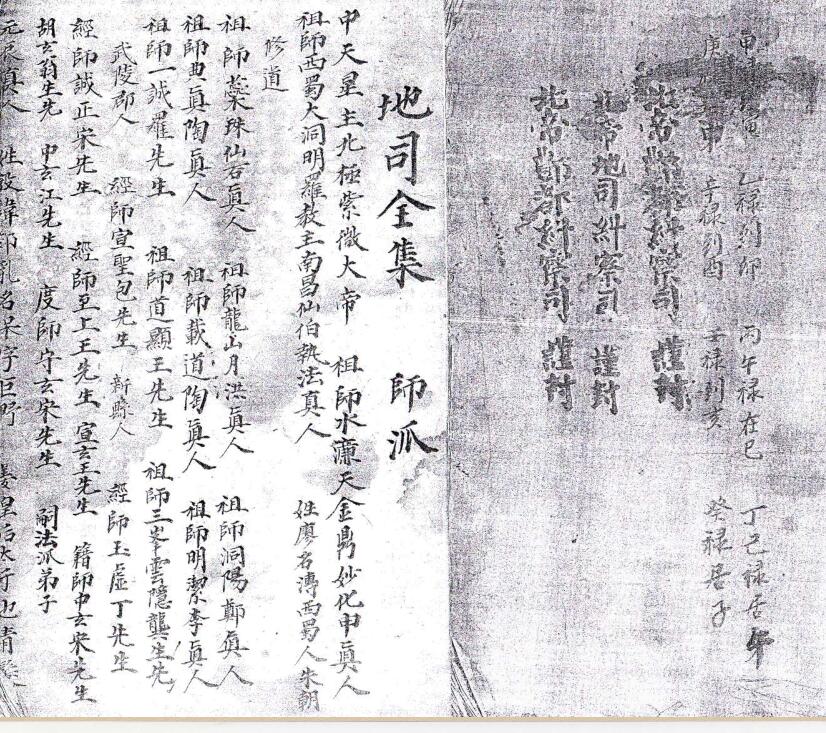 甲 寅 乙祿到卯 丙午祿在巳 丁己祿居午
庚 申 辛祿到酉 壬祿到亥 癸祿居子
北帝酆都糾察司 謹封
北帝地司糾察司 謹封
北帝酆都糾察司 謹封
地司全集 師派
中天星主北極紫微大帝 祖師水濂天金鼎妙化申真人
祖師西蜀大洞明羅教主南昌仙伯執法真人 姓廖名溥西蜀人朱朝
修道
祖師蘂珠仙君真人 祖師龍山月洪真人 祖師洞陽鄭真人
祖師典真陶真人 祖師載道陶真人 祖師明潔李真人
祖師一誠羅先生 祖師道顯王先生 祖師三峯雲隱龔生先
武陵郡人 經師宣聖包先生 新 人 經師玉虛丁先生
經師誠正宋先生 經師至上王先生 宣玄王先生 籍師中玄宋先生
胡玄翁生先 中玄江先生 度師守玄宋先生 嗣法派弟子
元 真人 姓殷 名 字巨野 姜皇后